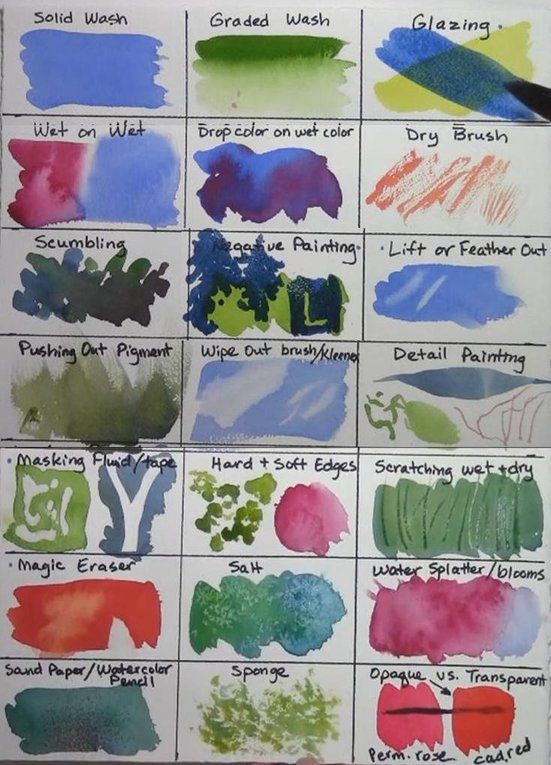 Solid Wash
Graded Wash
Glazing.
Wet on Wet
Drop color on wet color
Dry Brush
Scumbling
Negative Painting.
· Lift or Feather Out
Pushing Out Pigment
Wipe Out brush/Kleenex
Detail Painting
· Masking Fluid/tape
Hard + Soft Edges
Scratching wet + dry
· Magic Eraser
Salt
Water Splatter/blooms
Sand Paper/Watercolor
Pencil
Sponge
Opaque vs. Transparent
Perm. rose
cad.red